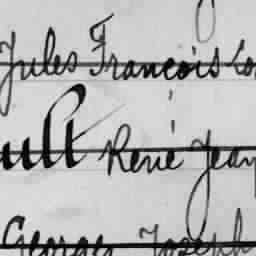 Jules François
ult René Jean
Georges Joseph